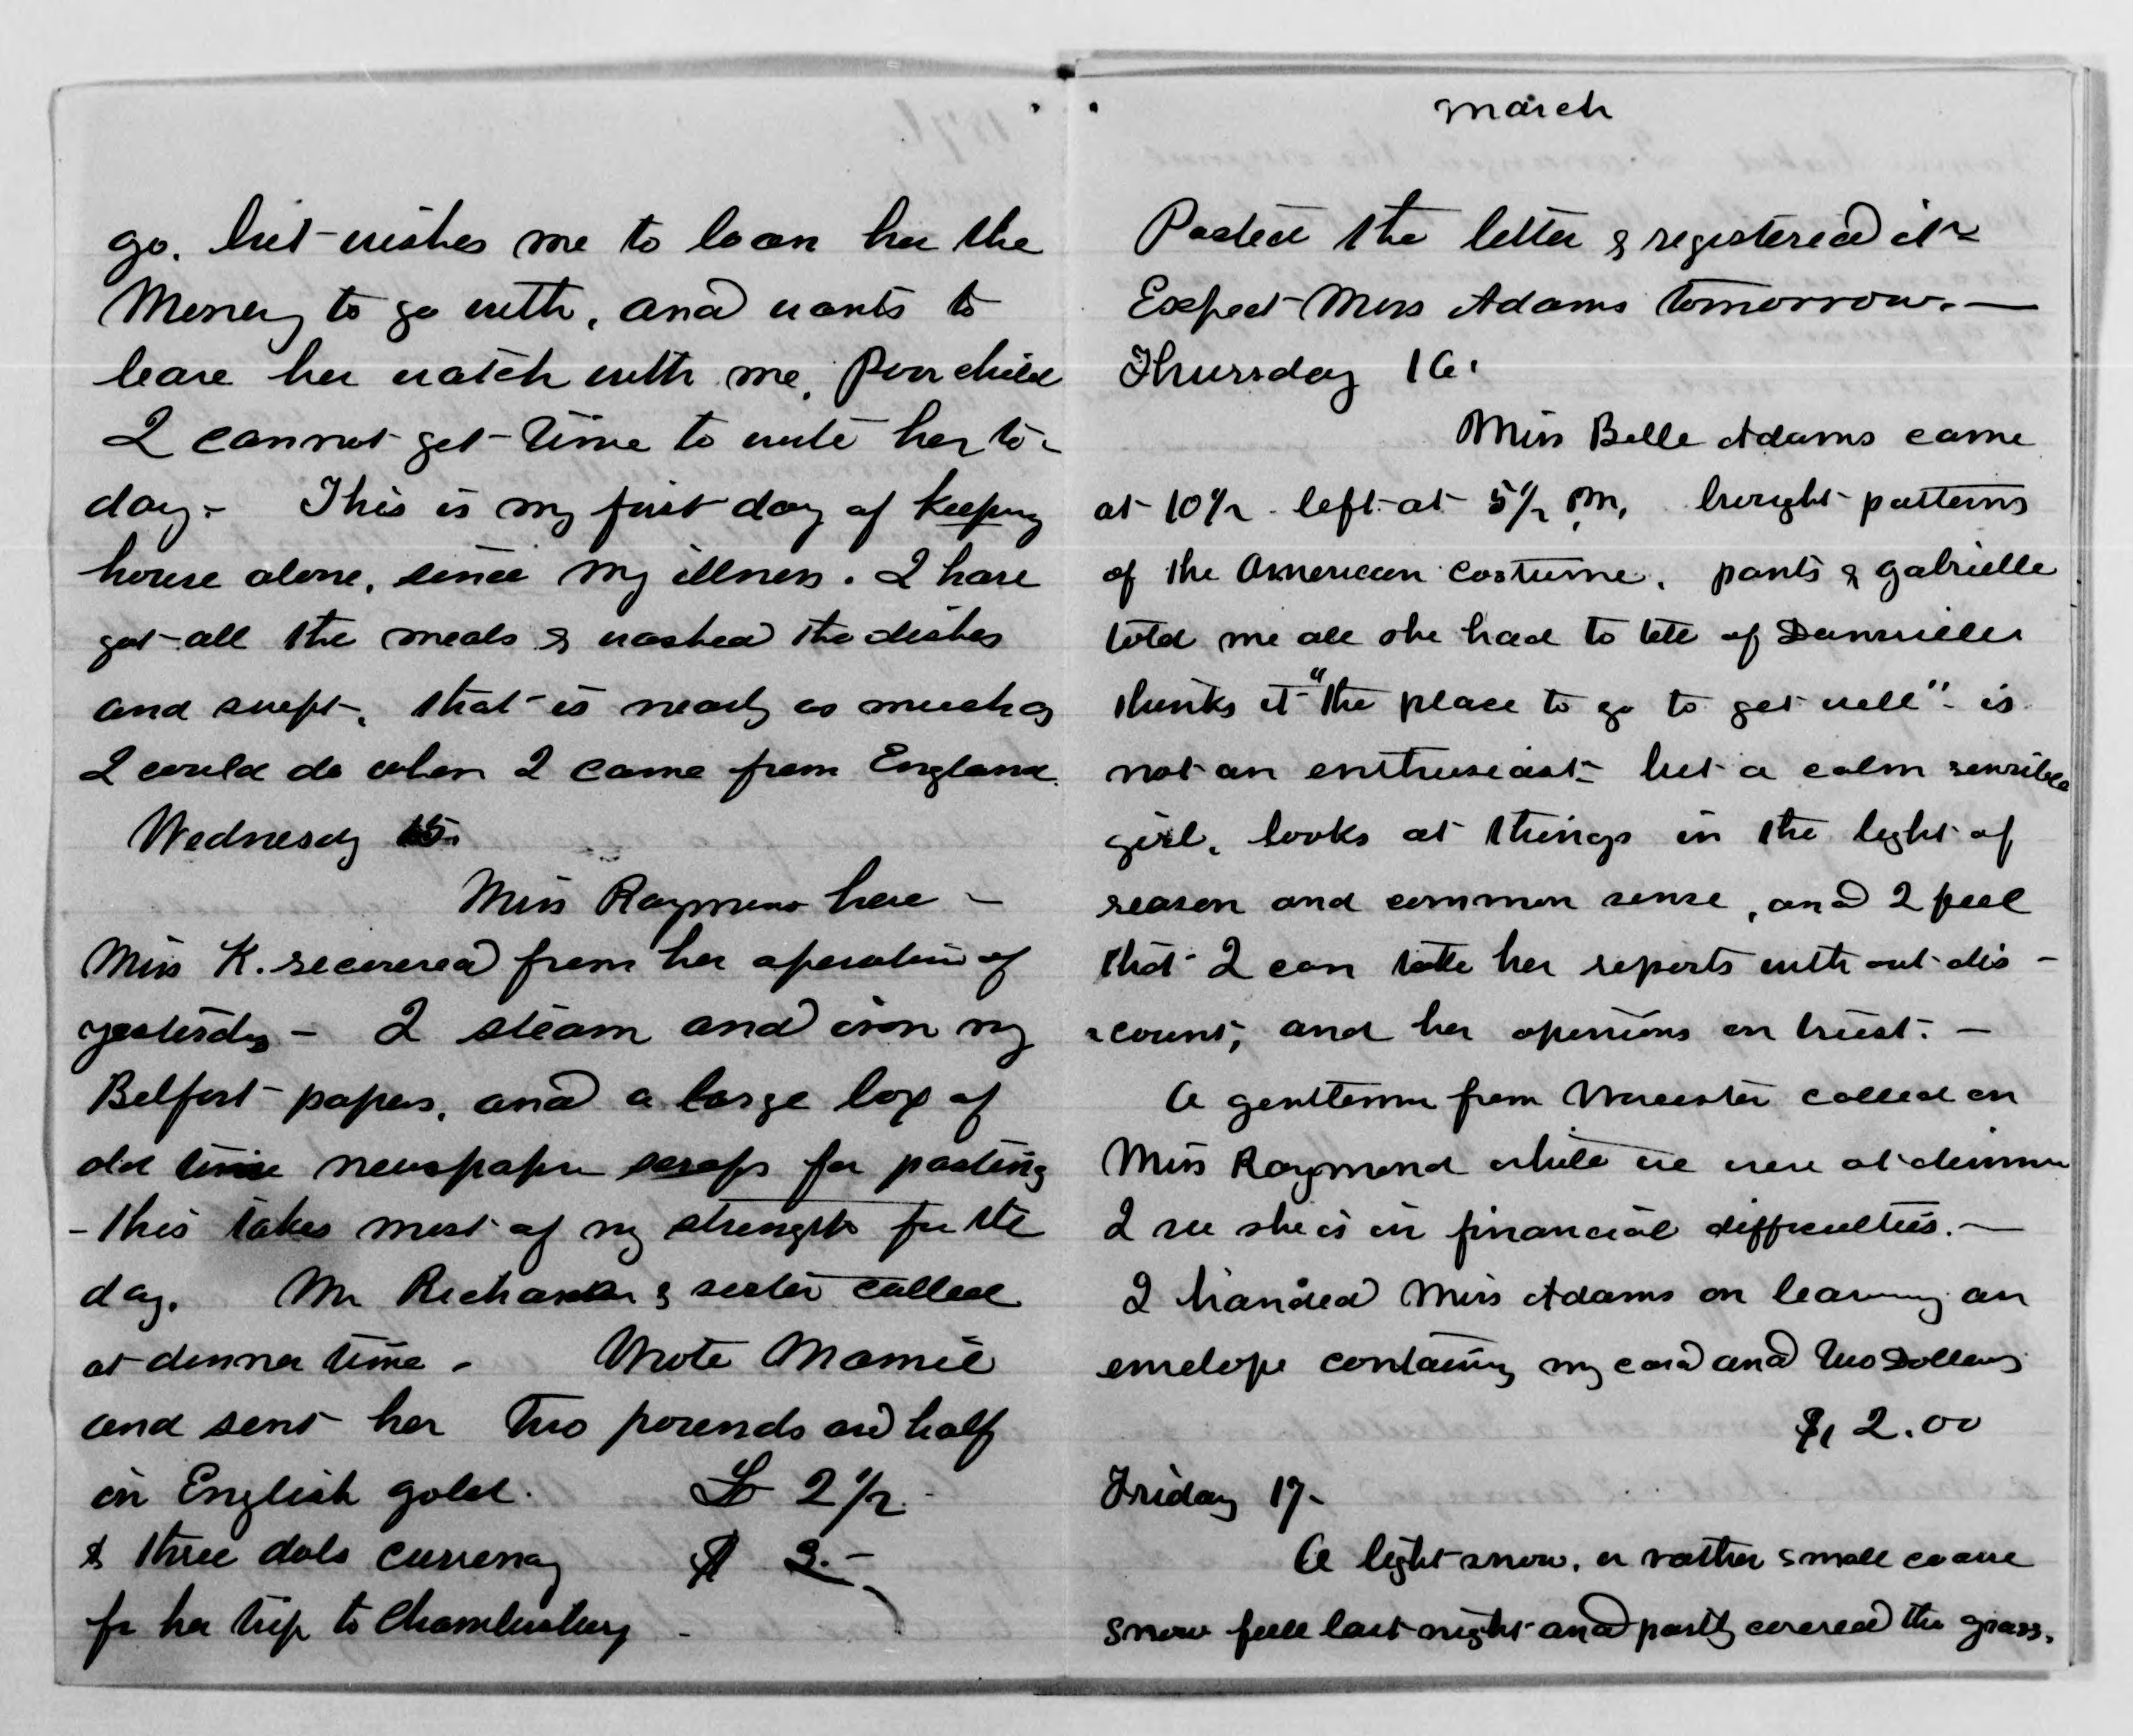 go. but wishes me to loan her the
Money to go with, and wants to
leave her watch with me. Poor child
I cannot get time to write her to-
day - This is my first day of keeping
house alone, since my illness. I have
got all the meals & washed the dishes
and swept, that is nearly as much as
I could do when I came from England.
Wednesdy 15.
Miss Raymond here -
Miss K. recovered from her operation of
yesterdy - I steam and iron my
Belfort papers, and a large box of
old time newspaper scraps for pasting
- this takes most of my strength for the
day. Mr Richardson & sister called
at dinner time - Wrote Mamie
and sent her Two pounds and half
in English gold. £ 2 1/2
& three dols currency $ 3.-
for her trip to Chambersburg -
march
Posted the letter & registered it -
Expect Miss Adams tomorrow. -
Thursday 16.
Miss Belle Adams came
at 10 1/2 left at 5 1/2 P.M. brought patterns
of the American Costume, pants & gabrielle
told me all she had to tell of Dansville
thinks it "the place to go to get well" - is
not an enthusiast - but a calm sensible
girl, looks at things in the light of
reason and common sense, and I feel
that I can take her reports with out dis -
count, and her opinions on trust. -
A gentleman from Worcester called on
Miss Raymond while we were at dinner
I see she is in financial difficulties. -
I handed Miss Adams on leaving an
envelope containing my card and Two Dollars
$ 2.00
Friday 17 -
A light snow, or rather small coarse
snow fell last night and partly covered the grass.